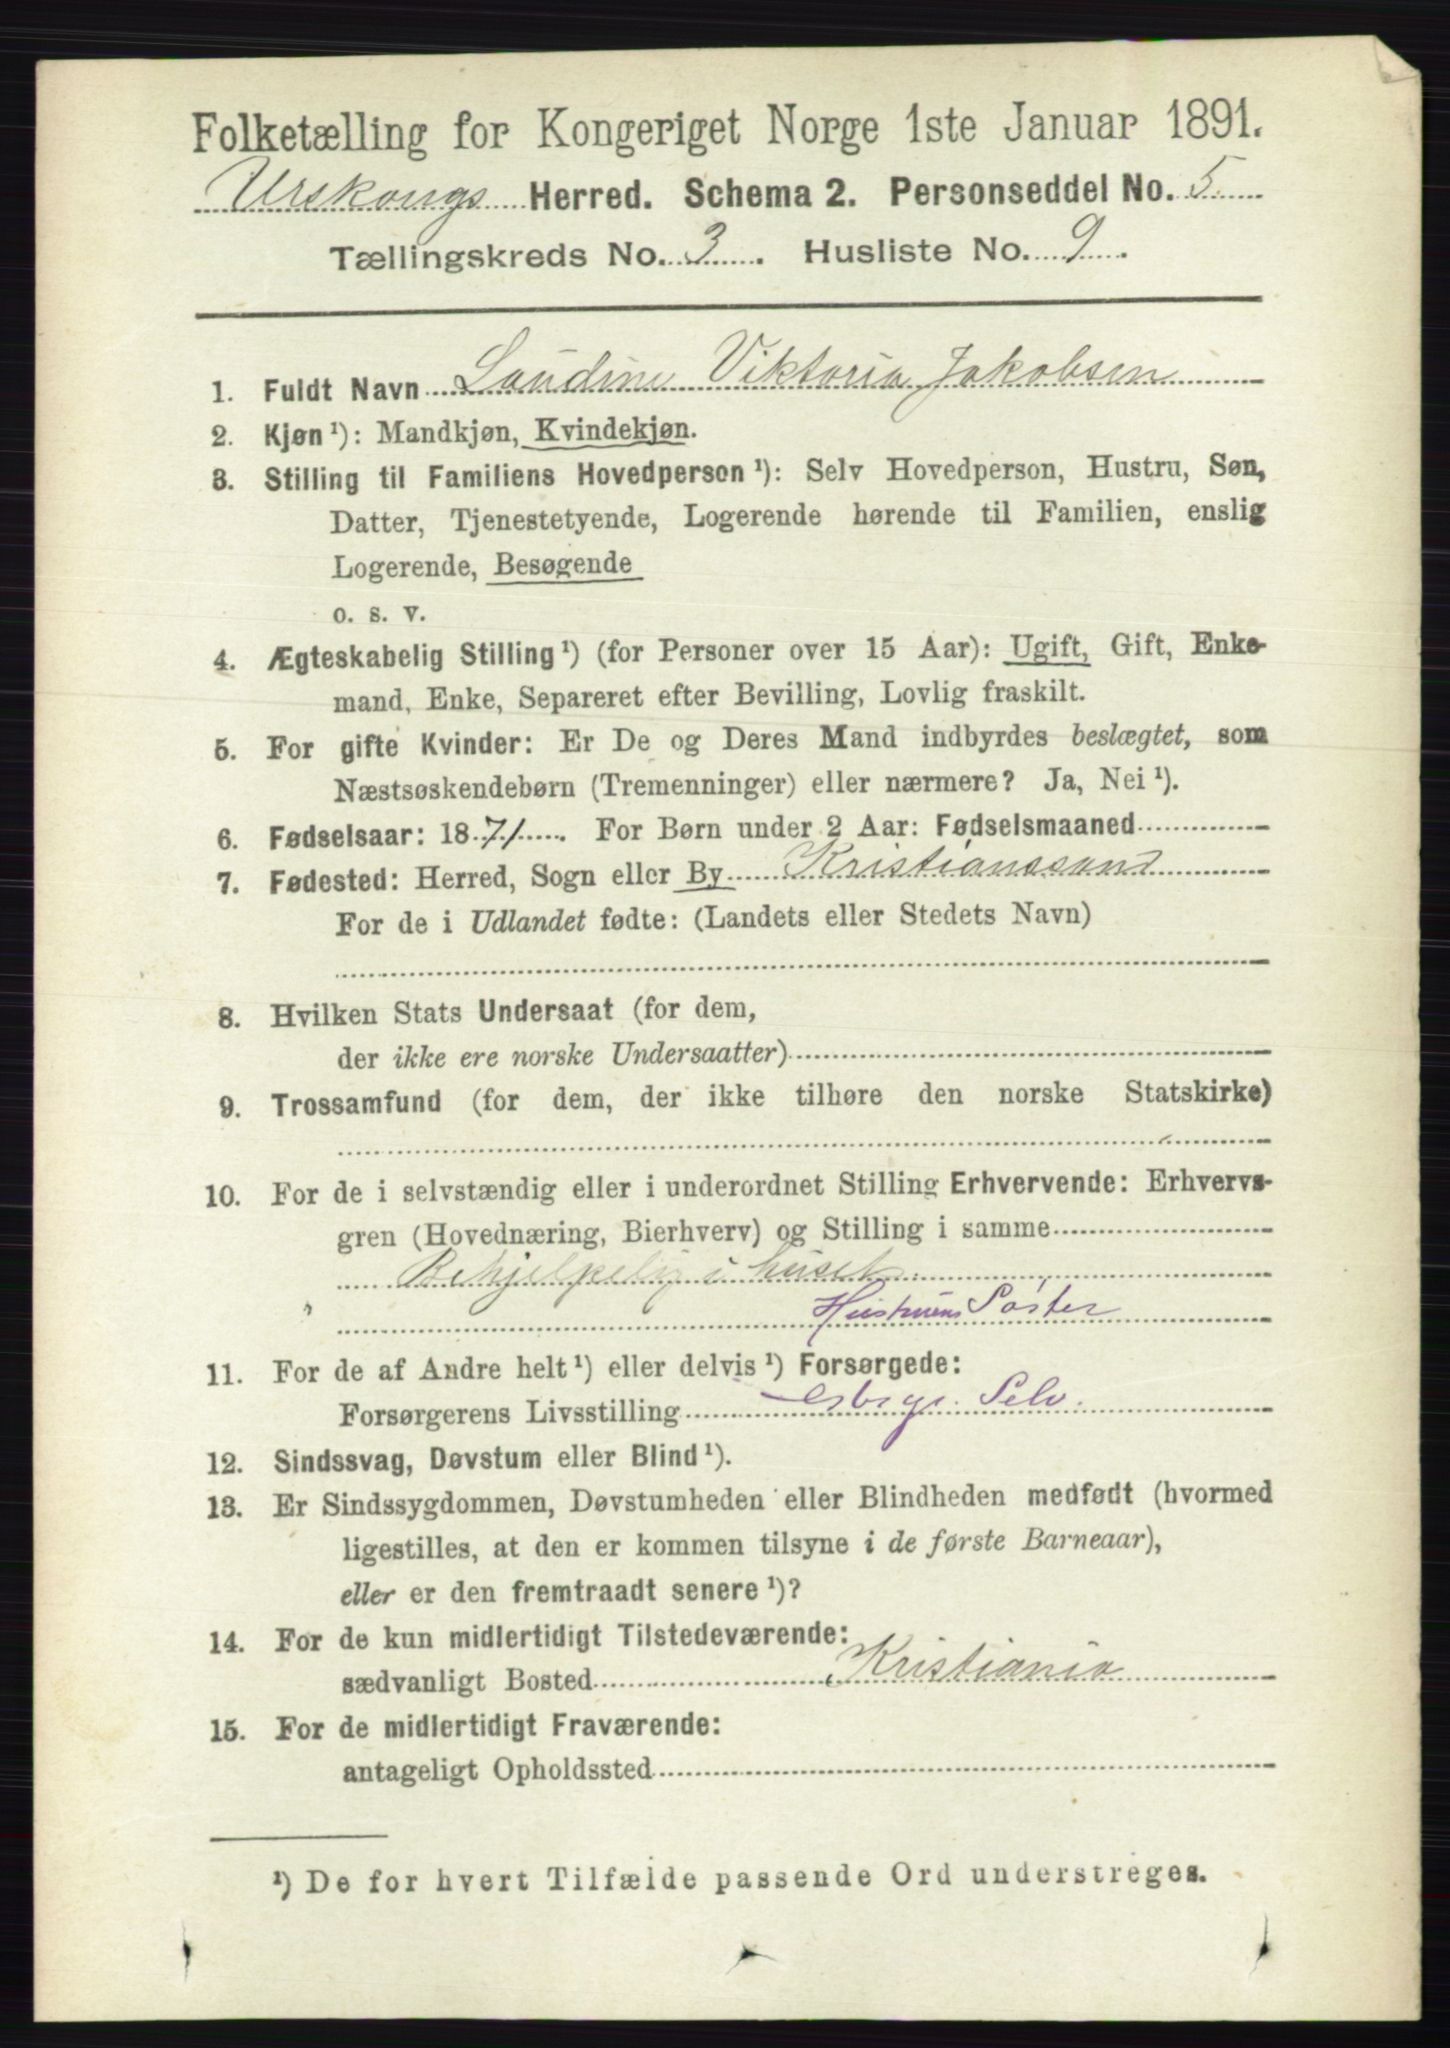 Folketælling for Kongeriget Norge 1ste Januar 1891.
Urskougs Herred. Schema 2. Personseddel No. 5
Tællingskreds No. 3. Husliste No. 9.
1. Fuldt Navn Laudine Viktoria Jakobsen
2. Kjøn ¹): Mandkjøn, Kvindekjøn.
3. Stilling til Familiens Hovedperson ¹): Selv Hovedperson, Hustru, Søn,
Datter, Tjenestetyende, Logerende hørende til Familien, enslig
Logerende, Besøgende
o. s. v.
4. Ægteskabelig Stilling ¹) (for Personer over 15 Aar): Ugift, Gift, Enke-
mand, Enke, Separeret efter Bevilling, Lovlig fraskilt.
5. For gifte Kvinder: Er De og Deres Mand indbyrdes beslægtet, som
Næstsøskendebørn (Tremenninger) eller nærmere? Ja, Nei ¹).
6. Fødselsaar: 1871. For Børn under 2 Aar: Fødselsmaaned
7. Fødested: Herred, Sogn eller By Kristianssund
For de i Udlandet fødte: (Landets eller Stedets Navn)
8. Hvilken Stats Undersaat (for dem,
der ikke ere norske Undersaatter)
9. Trossamfund (for dem, der ikke tilhøre den norske Statskirke)
10. For de i selvstændig eller i underordnet Stilling Erhvervende: Erhvervs-
gren (Hovednæring, Bierhverv) og Stilling i samme
Behjelpelig i huset
Hustruens Søster
11. For de af Andre helt ¹) eller delvis ¹) Forsørgede:
Forsørgerens Livsstilling Selv.
12. Sindssvag, Døvstum eller Blind ¹).
13. Er Sindssygdommen, Døvstumheden eller Blindheden medfødt (hvormed
ligestilles, at den er kommen tilsyne i de første Barneaar),
eller er den fremtraadt senere ¹)?
14. For de kun midlertidigt Tilstedeværende:
sædvanligt Bosted Kristiania
15. For de midlertidigt Fraværende:
antageligt Opholdssted
¹) De for hvert Tilfælde passende Ord understreges.